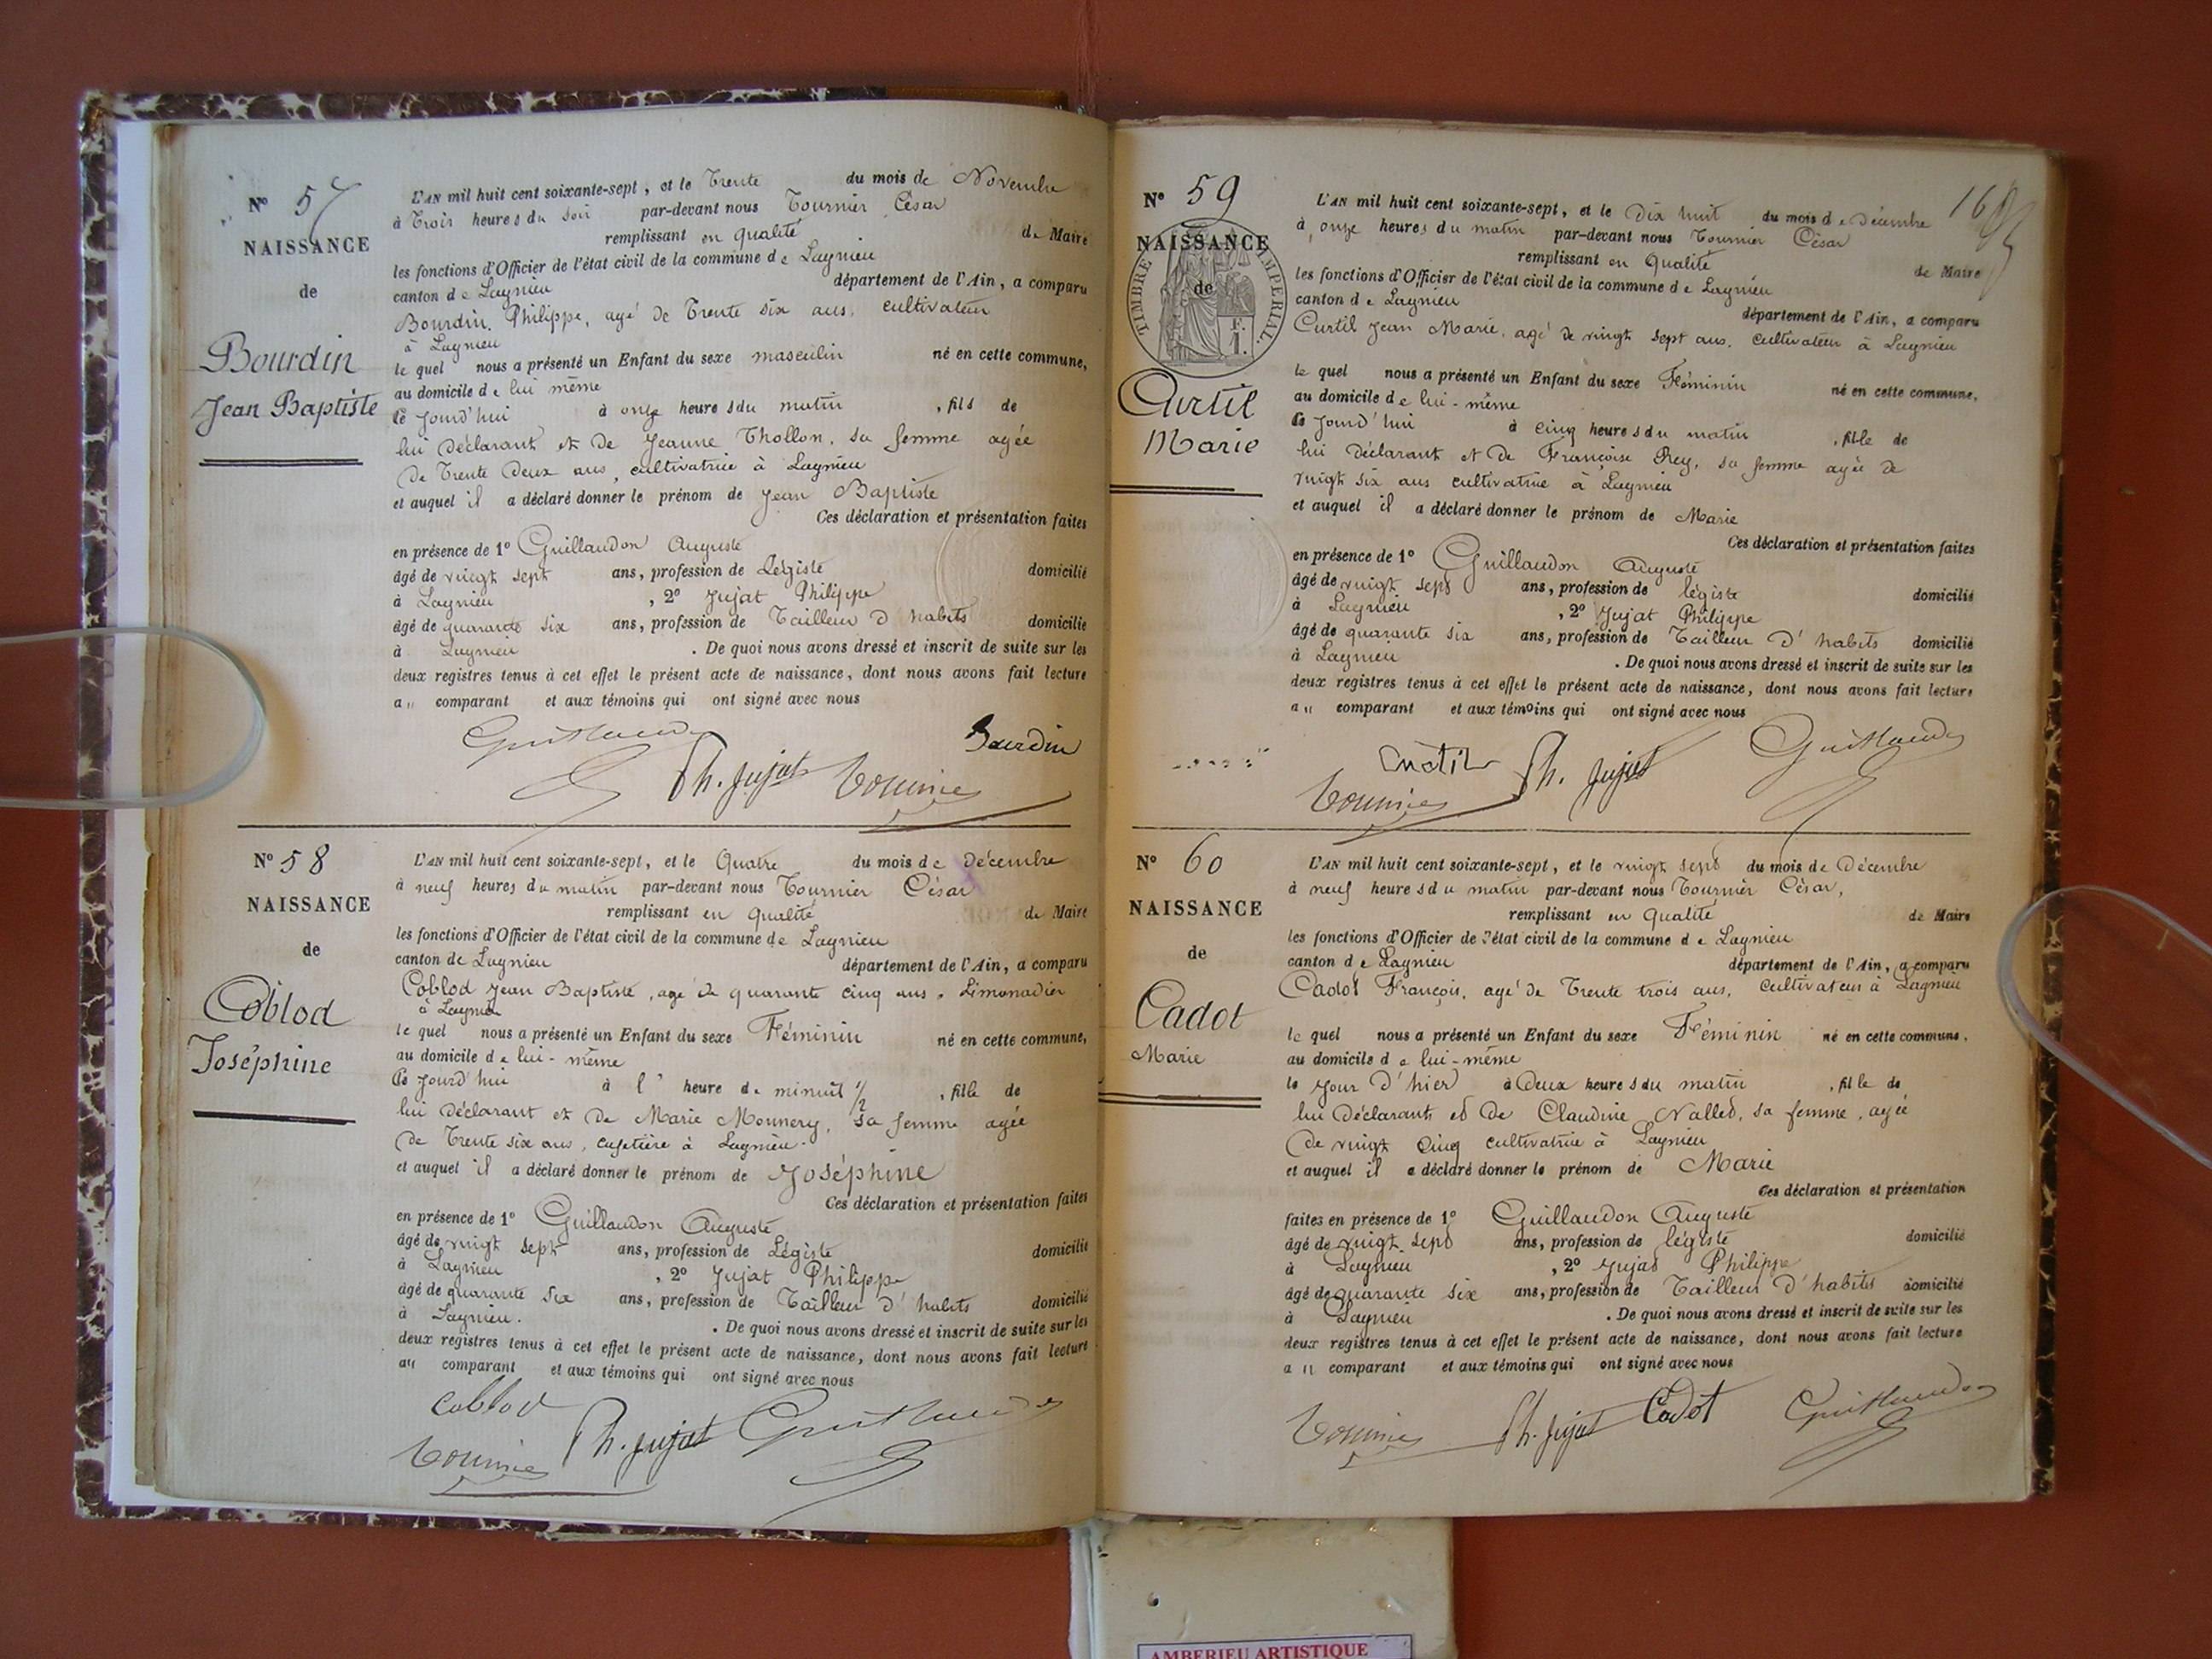 N° 57
NAISSANCE
de
Bourdin
Jean Baptiste
L'AN mil huit cent soixante-sept, et le Trente du mois de Novembre
à Trois heures du soir par-devant nous Tournier César
remplissant en qualité de Maire
les fonctions d'Officier de l'état civil de la commune de Lagnieu
canton de Lagnieu département de l'Ain, a comparu
Bourdin, Philippe, agé de Trente six ans, cultivateur
à Lagnieu
le quel nous a présenté un Enfant du sexe masculin né en cette commune,
au domicile de lui même
ce jourd'hui à onze heures du matin, fils de
lui déclarant et de Jeanne Thollon, sa femme agée
de Trente deux ans, cultivatrice à Lagnieu
et auquel il a déclaré donner le prénom de Jean Baptiste
Ces déclaration et présentation faites
en présence de 1° Guillaudon Auguste
âgé de vingt sept ans, profession de Légiste domicilié
à Lagnieu, 2° Jujat Philippe
âgé de quarante six ans, profession de Tailleur d'habits domicilié
à Lagnieu. De quoi nous avons dressé et inscrit de suite sur les
deux registres tenus à cet effet le présent acte de naissance, dont nous avons fait lecture
au comparant et aux témoins qui ont signé avec nous
Guillaudon Bourdin
Ph. Jujat Tournier
N° 58
NAISSANCE
de
Coblod
Joséphine
L'AN mil huit cent soixante-sept, et le Quatre du mois de Décembre
à neuf heures du matin par-devant nous Tournier César
remplissant en qualité de Maire
les fonctions d'Officier de l'état civil de la commune de Lagnieu
canton de Lagnieu département de l'Ain, a comparu
Coblod Jean Baptiste, agé de quarante cinq ans, Limonadier
à Lagnieu
le quel nous a présenté un Enfant du sexe Féminin né en cette commune,
au domicile de lui-même
ce jourd'hui à l' heure de minuit 1/2, fille de
lui déclarant et de Marie Monnery, sa femme agée
de Trente six ans, cafetière à Lagnieu.
et auquel il a déclaré donner le prénom de Joséphine
Ces déclaration et présentation faites
en présence de 1° Guillaudon Auguste
âgé de vingt sept ans, profession de Légiste domicilié
à Lagnieu, 2° Jujat Philippe
âgé de quarante six ans, profession de Tailleur d'habits domicilié
à Lagnieu. De quoi nous avons dressé et inscrit de suite sur les
deux registres tenus à cet effet le présent acte de naissance, dont nous avons fait lecture
au comparant et aux témoins qui ont signé avec nous
Coblod Ph. Jujat Guillaudon
Tournier
N° 59
NAISSANCE
de
TIMBRE IMPERIAL.
F.
1.
Curtil
Marie
L'AN mil huit cent soixante-sept, et le dix huit du mois de Décembre
à onze heures du matin par-devant nous Tournier César
remplissant en Qualité de Maire
les fonctions d'Officier de l'état civil de la commune de Lagnieu
canton de Lagnieu département de l'Ain, a comparu
Curtil Jean Marie, agé de vingt sept ans, cultivateur à Lagnieu
le quel nous a présenté un Enfant du sexe Féminin né en cette commune,
au domicile de lui-même
ce jourd'hui à cinq heures du matin, fille de
lui déclarant et de Françoise Rey, sa femme agée de
vingt six ans cultivatrice à Lagnieu
et auquel il a déclaré donner le prénom de Marie
Ces déclaration et présentation faites
en présence de 1° Guillaudon Auguste
âgé de vingt sept ans, profession de légiste domicilié
à Lagnieu, 2° Jujat Philippe
âgé de quarante six ans, profession de Tailleur d'habits domicilié
à Lagnieu. De quoi nous avons dressé et inscrit de suite sur les
deux registres tenus à cet effet le présent acte de naissance, dont nous avons fait lecture
au comparant et aux témoins qui ont signé avec nous
Curtil Ph. Jujat Guillaudon
Tournier
N° 60
NAISSANCE
de
Cadot
Marie
L'AN mil huit cent soixante-sept, et le vingt sept du mois de Décembre
à neuf heures du matin par-devant nous Tournier César,
remplissant en qualité de Maire
les fonctions d'Officier de l'état civil de la commune de Lagnieu
canton de Lagnieu département de l'Ain, a comparu
Cadot François, agé de Trente trois ans, cultivateur à Lagnieu
le quel nous a présenté un Enfant du sexe Féminin né en cette commune,
au domicile de lui-même
le jour d'hier à deux heures du matin, fille de
lui déclarant et de Claudine Nallet, sa femme, agée
de vingt cinq cultivatrice à Lagnieu
et auquel il a déclaré donner le prénom de Marie
Ces déclaration et présentation
faites en présence de 1° Guillaudon Auguste
âgé de vingt sept ans, profession de légiste domicilié
à Lagnieu, 2° Jujat Philippe
âgé de quarante six ans, profession de Tailleur d'habits domicilié
à Lagnieu. De quoi nous avons dressé et inscrit de suite sur les
deux registres tenus à cet effet le présent acte de naissance, dont nous avons fait lecture
au comparant et aux témoins qui ont signé avec nous
Tournier Ph. Jujat Cadot Guillaudon
AMBERIEU ARTISTIQUE